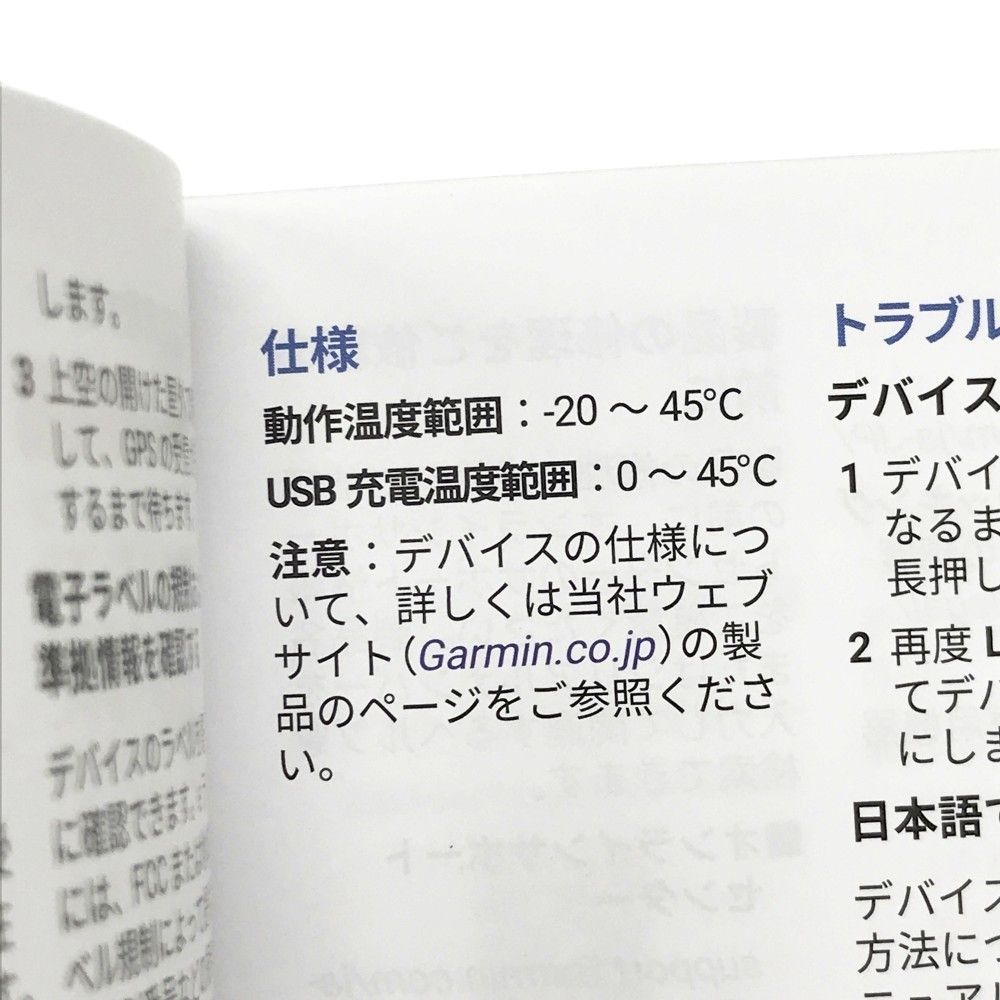 します。
3 上空の開けた
して、GPS の受
するまで待ちます
電子ラベルの規
準拠情報を確認す
デバイスのラベル
に確認できます。
には、FCC また
ベル規制によって
仕様
動作温度範囲：-20 ～ 45°C
USB 充電温度範囲：0 ～ 45°C
注意：デバイスの仕様につ
いて、詳しくは当社ウェブ
サイト（Garmin.co.jp）の製
品のページをご参照くださ
い。
トラブル
デバイス
1 デバイ
なるま
長押し
2 再度 L
てデバ
にしま
日本語で
デバイス
方法につ
ニュアル